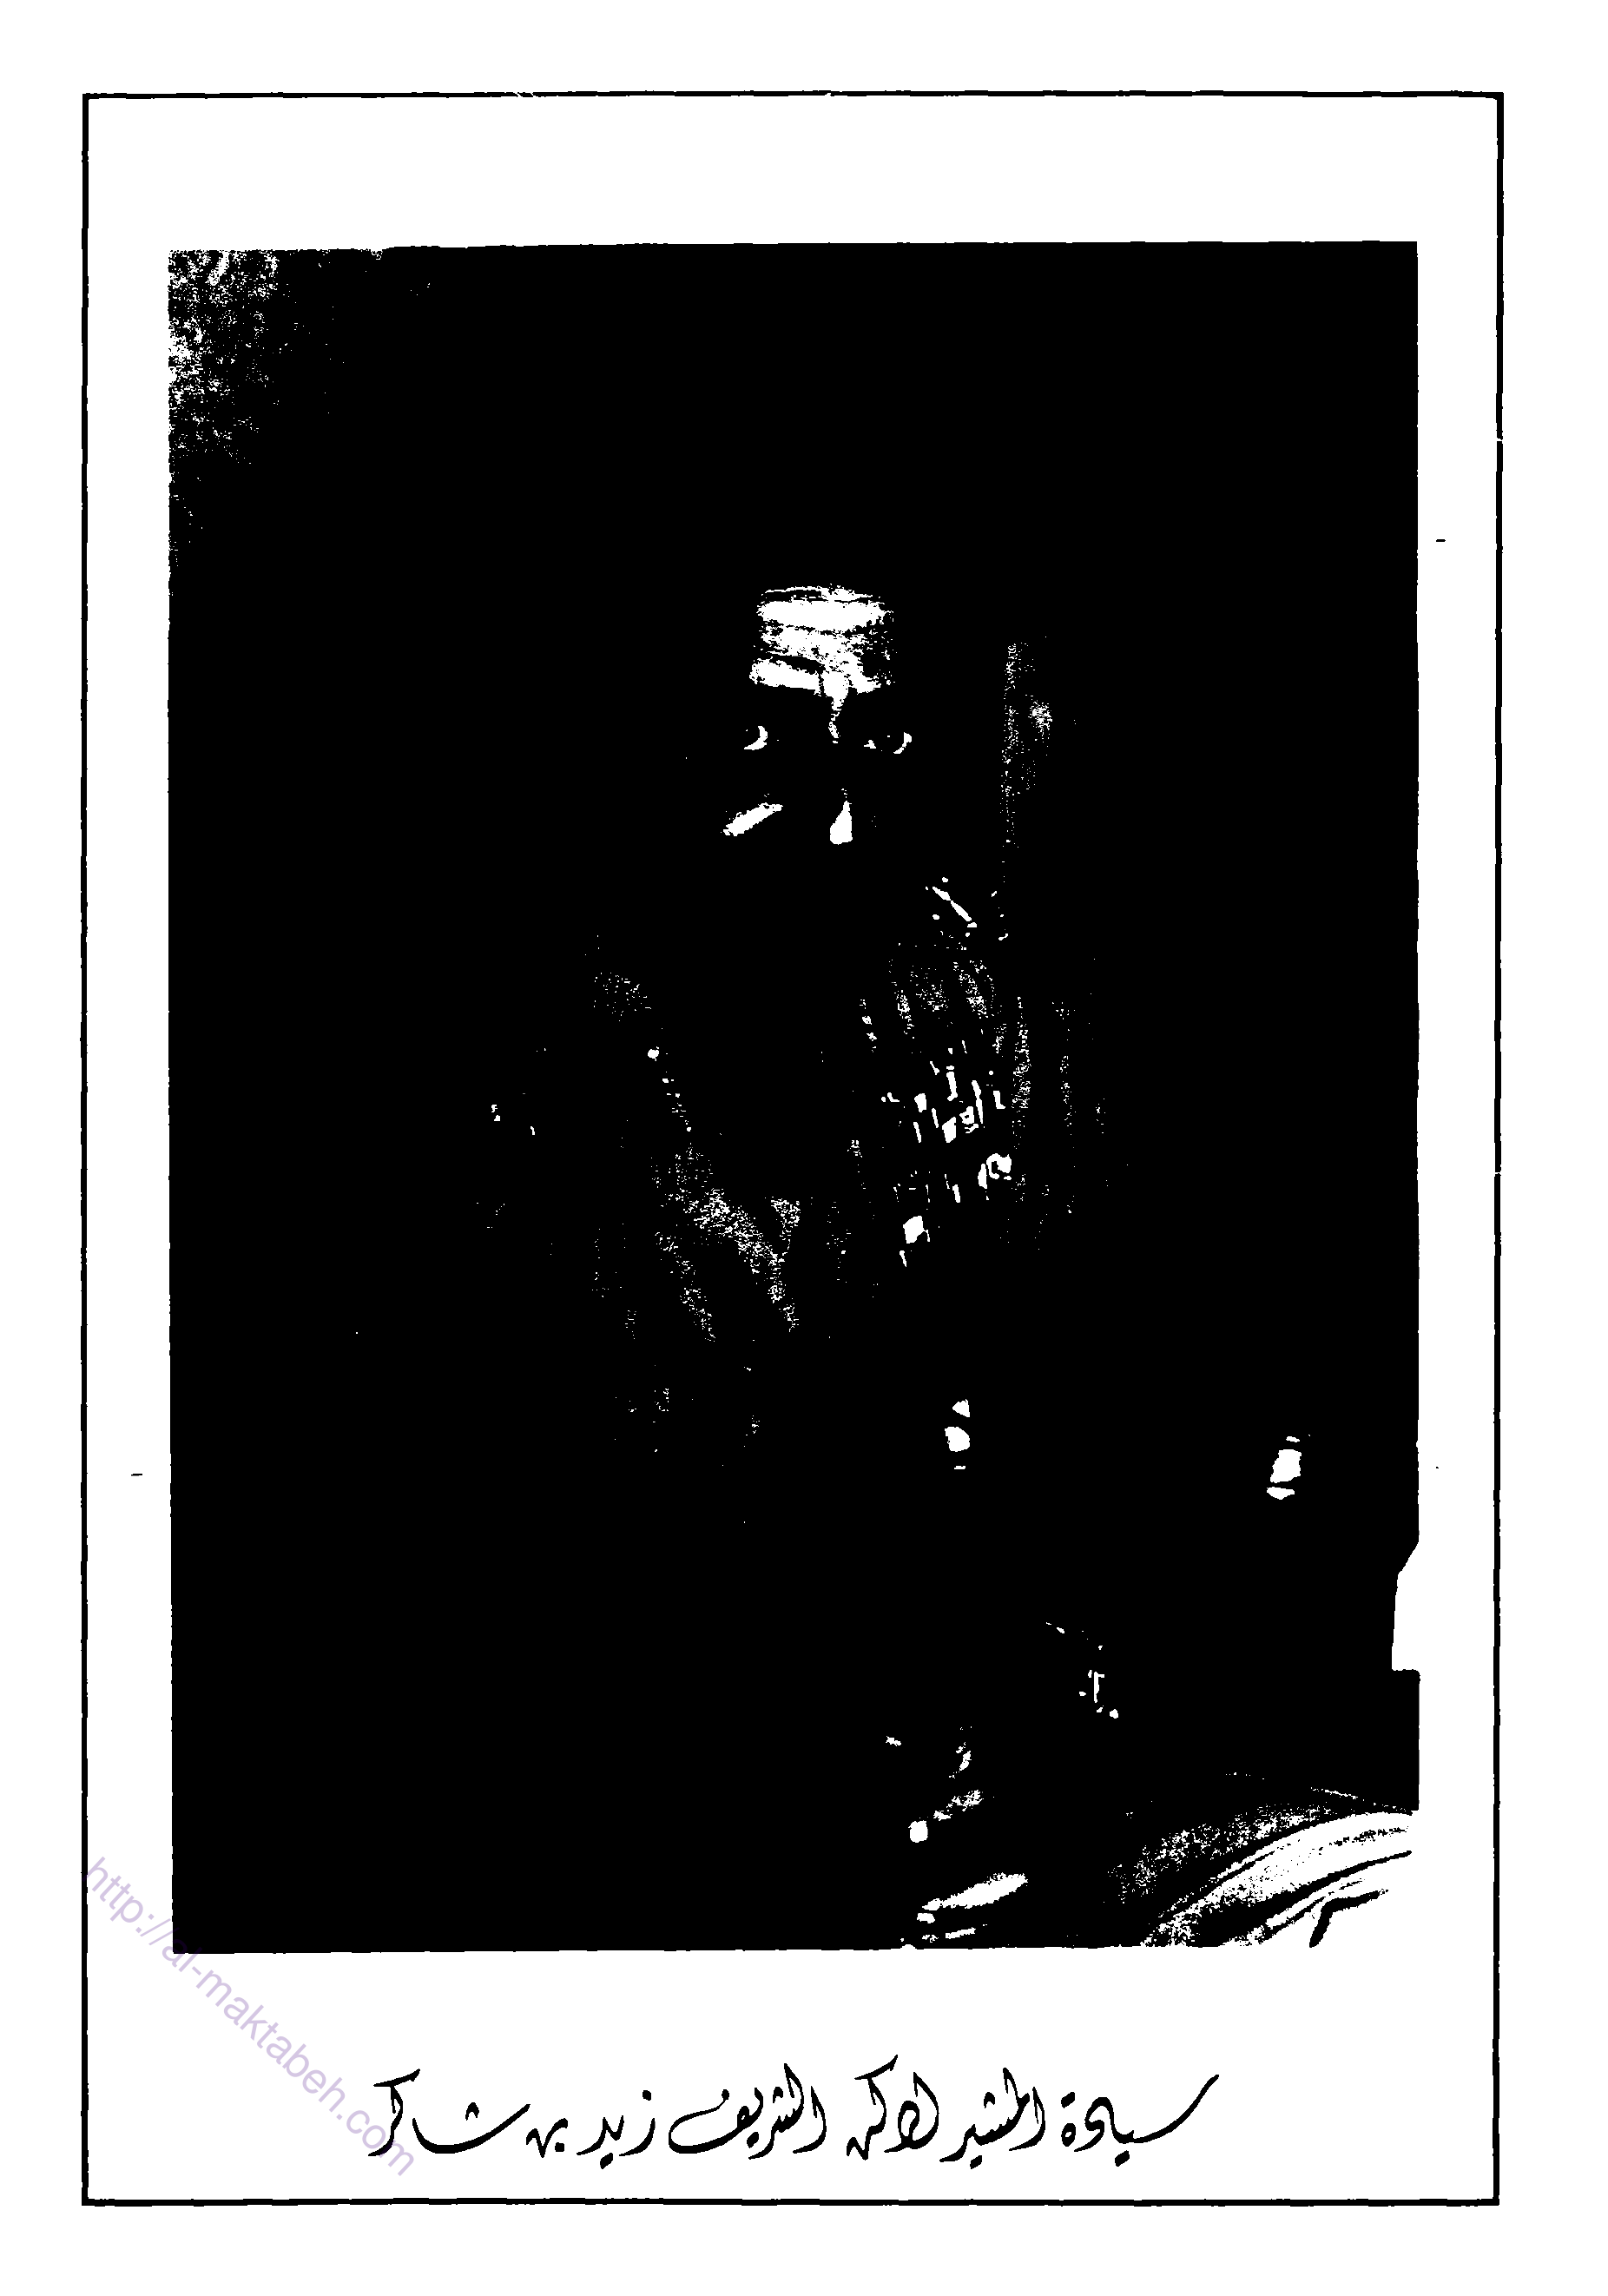 سيادة المشير الركن الشريف زيد بن شاكر
http://al-maktabeh.com